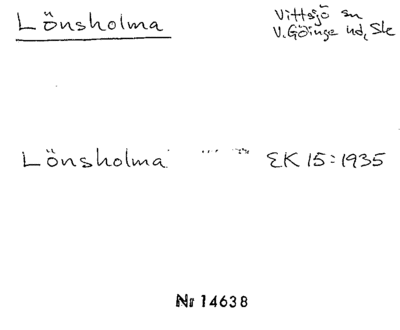 Lönsholma
Vittsjö sn
V. Göinge hd, Sk
Lönsholma EK 15:1935
Nr 14638